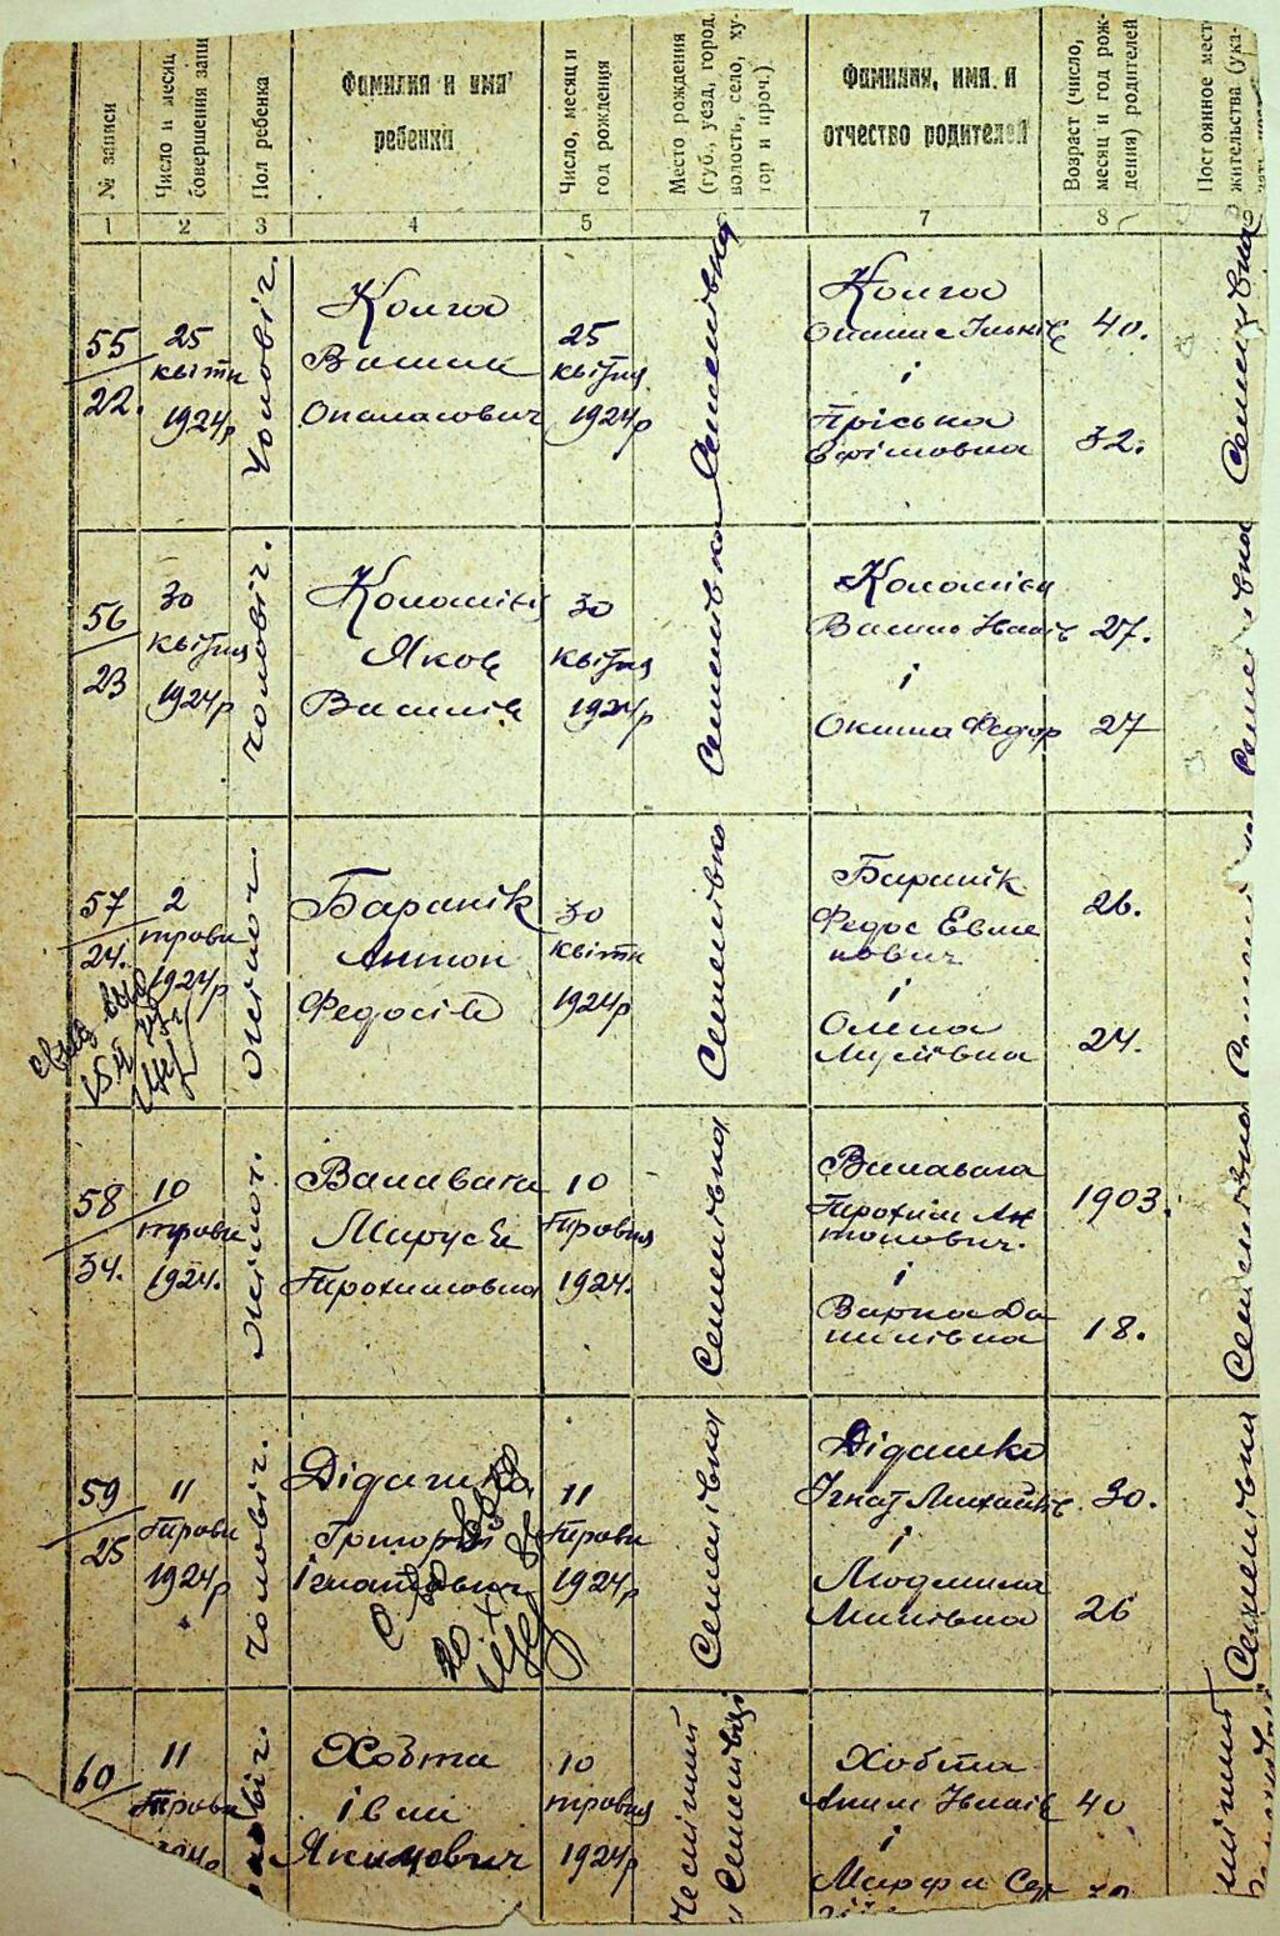 № записи
Число и месяц
совершения запи
Пол ребенка
Фамилия и имя
ребенка
Число, месяц и
год рождения
Место рождения
(губ., уезд, город,
волость, село, ху-
тор и проч.).
Фамилия, имя и
отчество родителей
Возраст (число,
месяц и год рож-
дения) родителей
Постоянное мест
жительства (ука-
1
2
3
4
5
7
8
9
55
22.
25
квітн
1924р
Чоловіч.
Колга
Опанасович
25
квітня
1924р
Семенівка
Колга
і
Пріська
Єфімовна
40.
32.
Семенівка
56
23
30
квітня
1924р
Чоловіч.
Коломієц
Яков
Василів
30
квітня
1924р
Семенівка
Коломієц
Василь Іванів
і
Федор
27.
27
Семенівка
57
24.
2
травн
1924р
Жіноч.
Бараnік
Антон
Федосів
30
квітн
1924р
Семенівка
Бараnік
Федос Евме
нович
і
Олена
26.
24.
58
34.
10
травн
1924.
Жіноч.
Валавага
Маруся
Трохимовна
10
Травня
1924.
Семенівка
Валавага
Трохим Ан
тонович.
і
Варка Да
нилівна
1903.
18.
Семенівка
59
25
11
Травн
1924р
Чоловіч.
Дідашко
Григорій
Ігнатович
20
11
Травн
1924р
Семенівка
Дідашко
Ігнат Михайлів
і
Людмила
30.
26
Семенівка
60
11
Травн
віч.
Хобта
Іван
Якимович
10
травня
1924р
Хобта
Яким Іванів
і
Марфа Сер
40